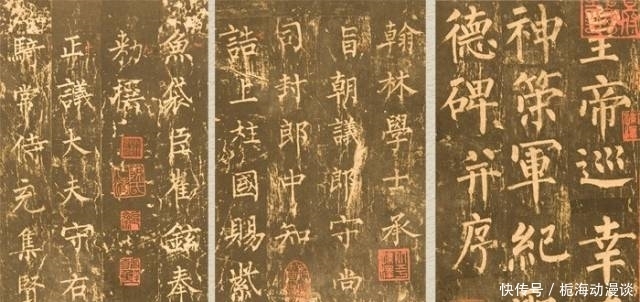 皇帝巡幸
神策軍紀
德碑并序
翰林學士承
旨朝議郎守尚
司封郎中知
誥上柱國賜紫
魚袋臣崔鉉奉
敕撰
正議大夫守右
騎常侍充集賢
快传号 / 栀海动漫谈